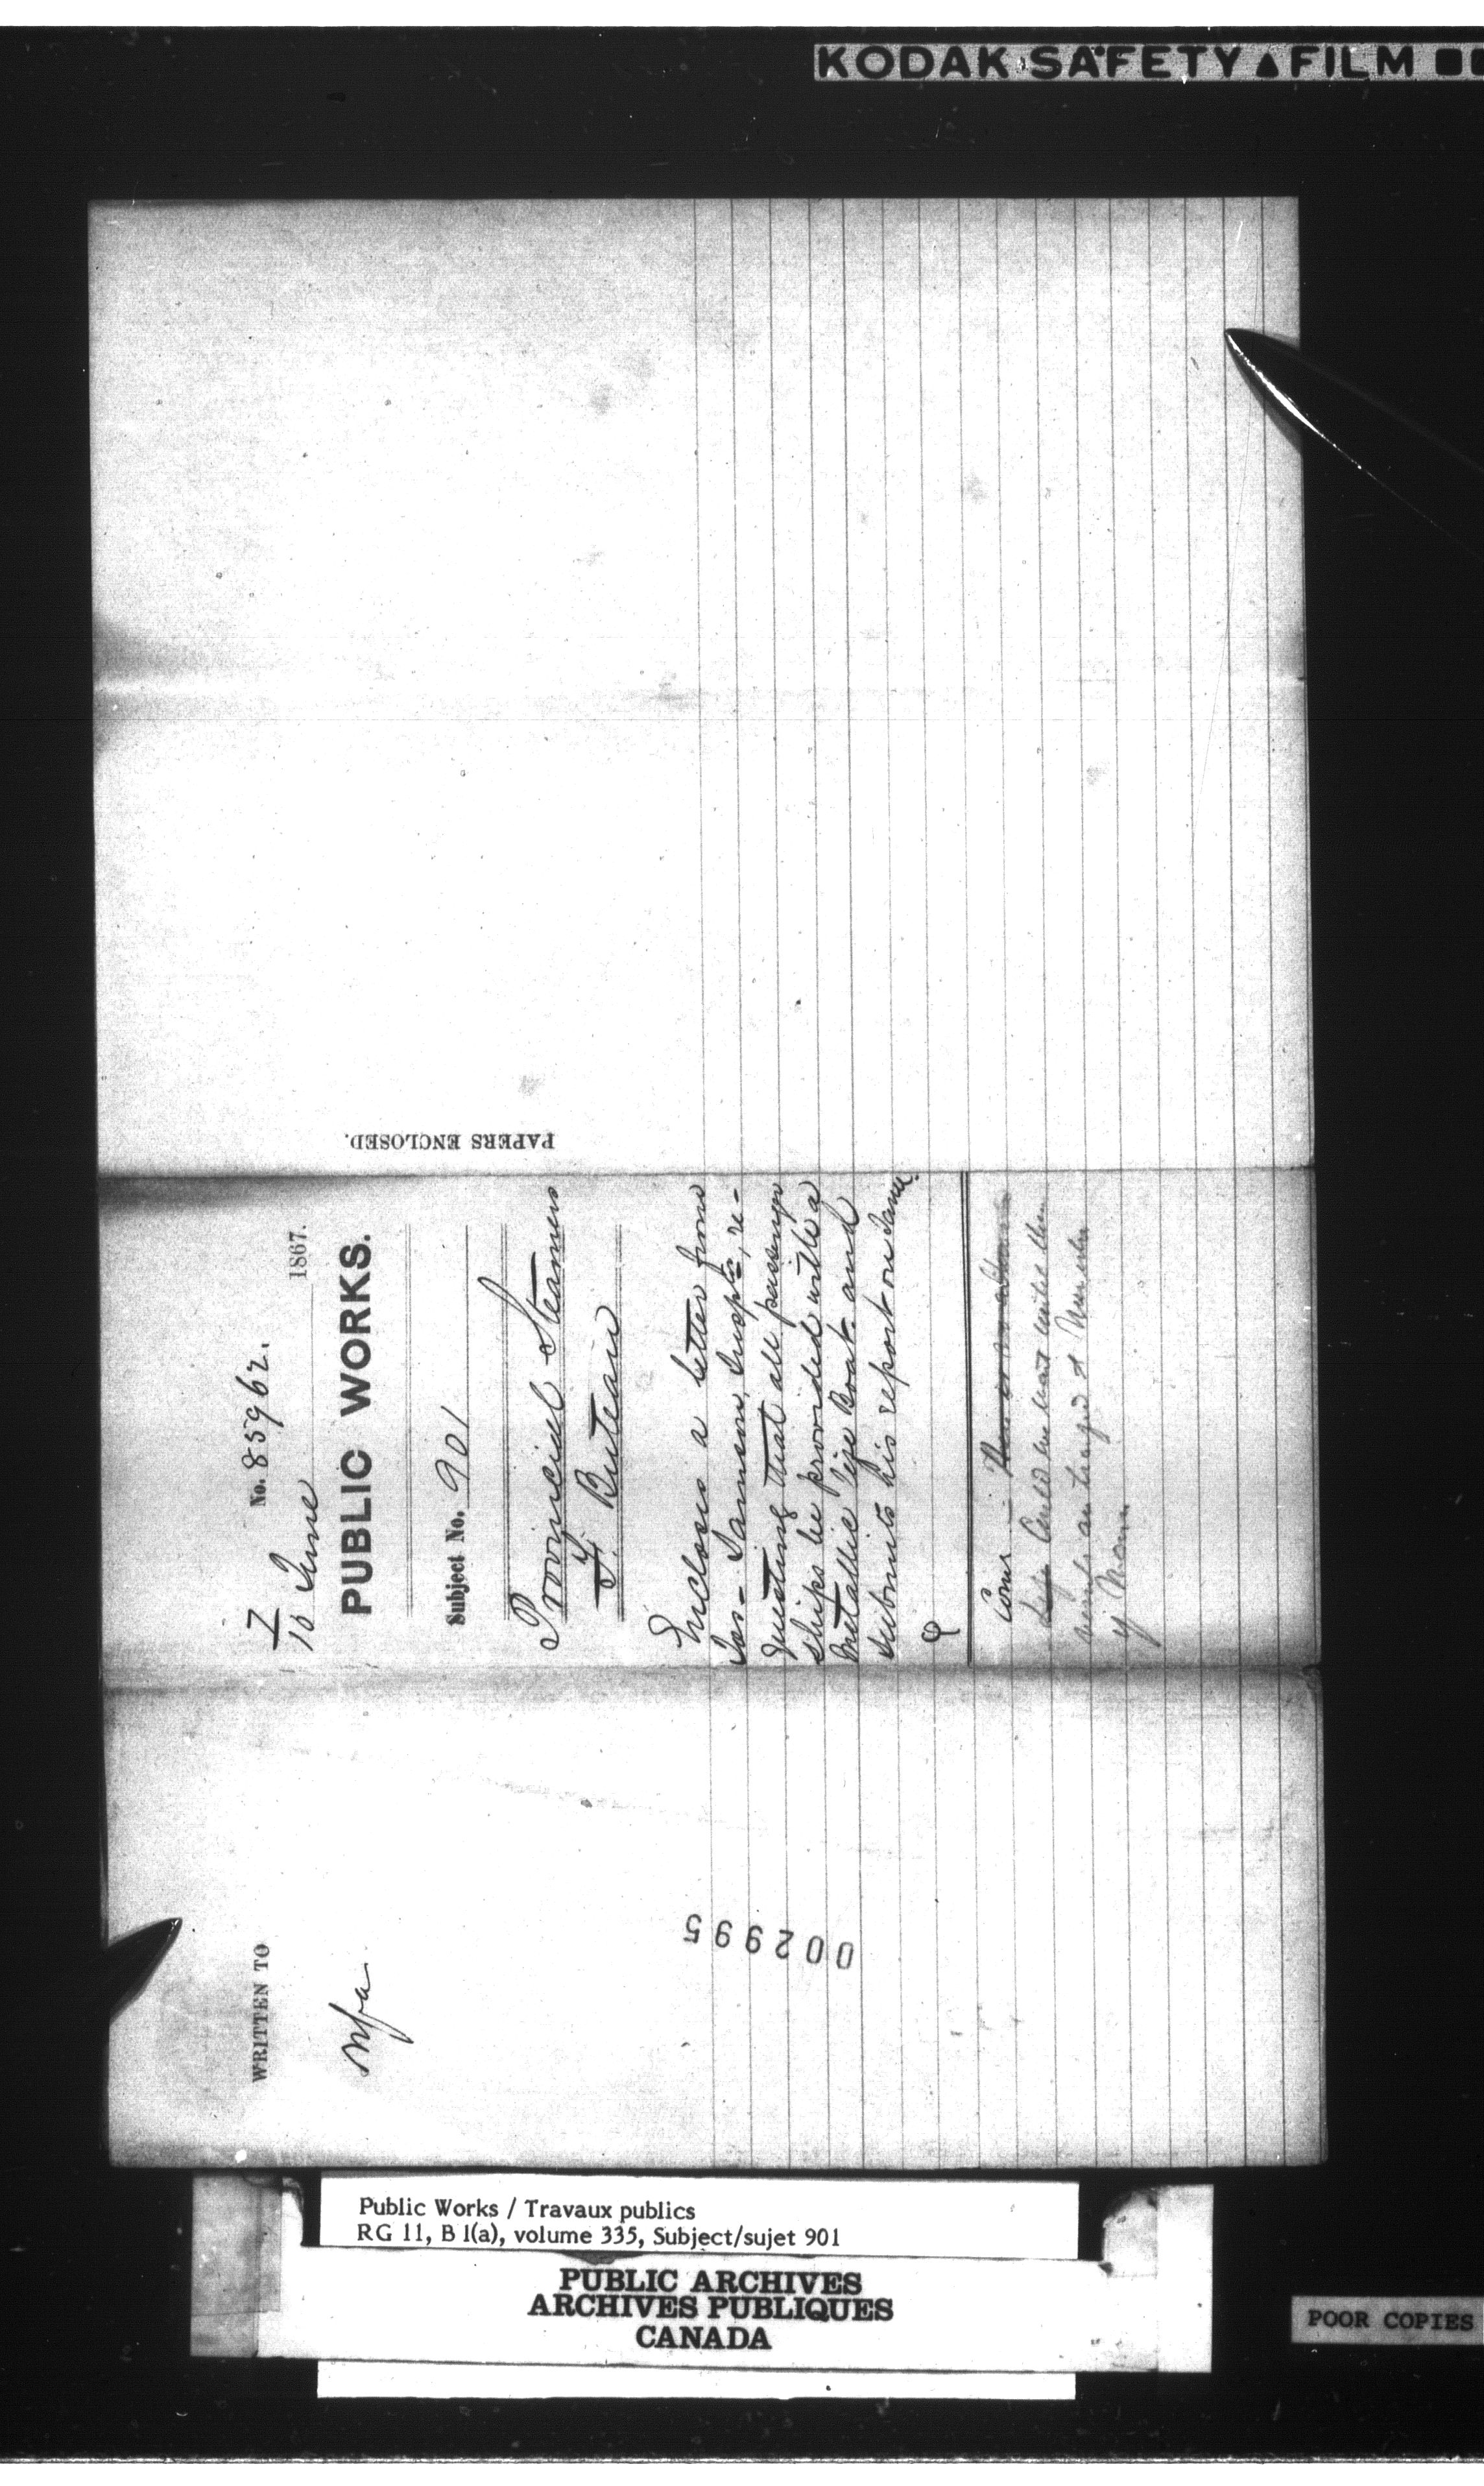 KODAK SAFETY FILM
No. 85962.
7
10 June 1867.
PUBLIC WORKS.
Subject No. 901
Provincial Steamers
F. Buteau
Encloses a letter from
Jas- Samson, Inspr, re-
questing that all passenger
ships be provided with a
Metallic life Boat and
submits his report on same.
PAPERS ENCLOSED.
WRITTEN TO
002995
Public Works / Travaux publics
RG 11, B 1(a), volume 335, Subject/sujet 901
PUBLIC ARCHIVES
ARCHIVES PUBLIQUES
CANADA
POOR COPIES